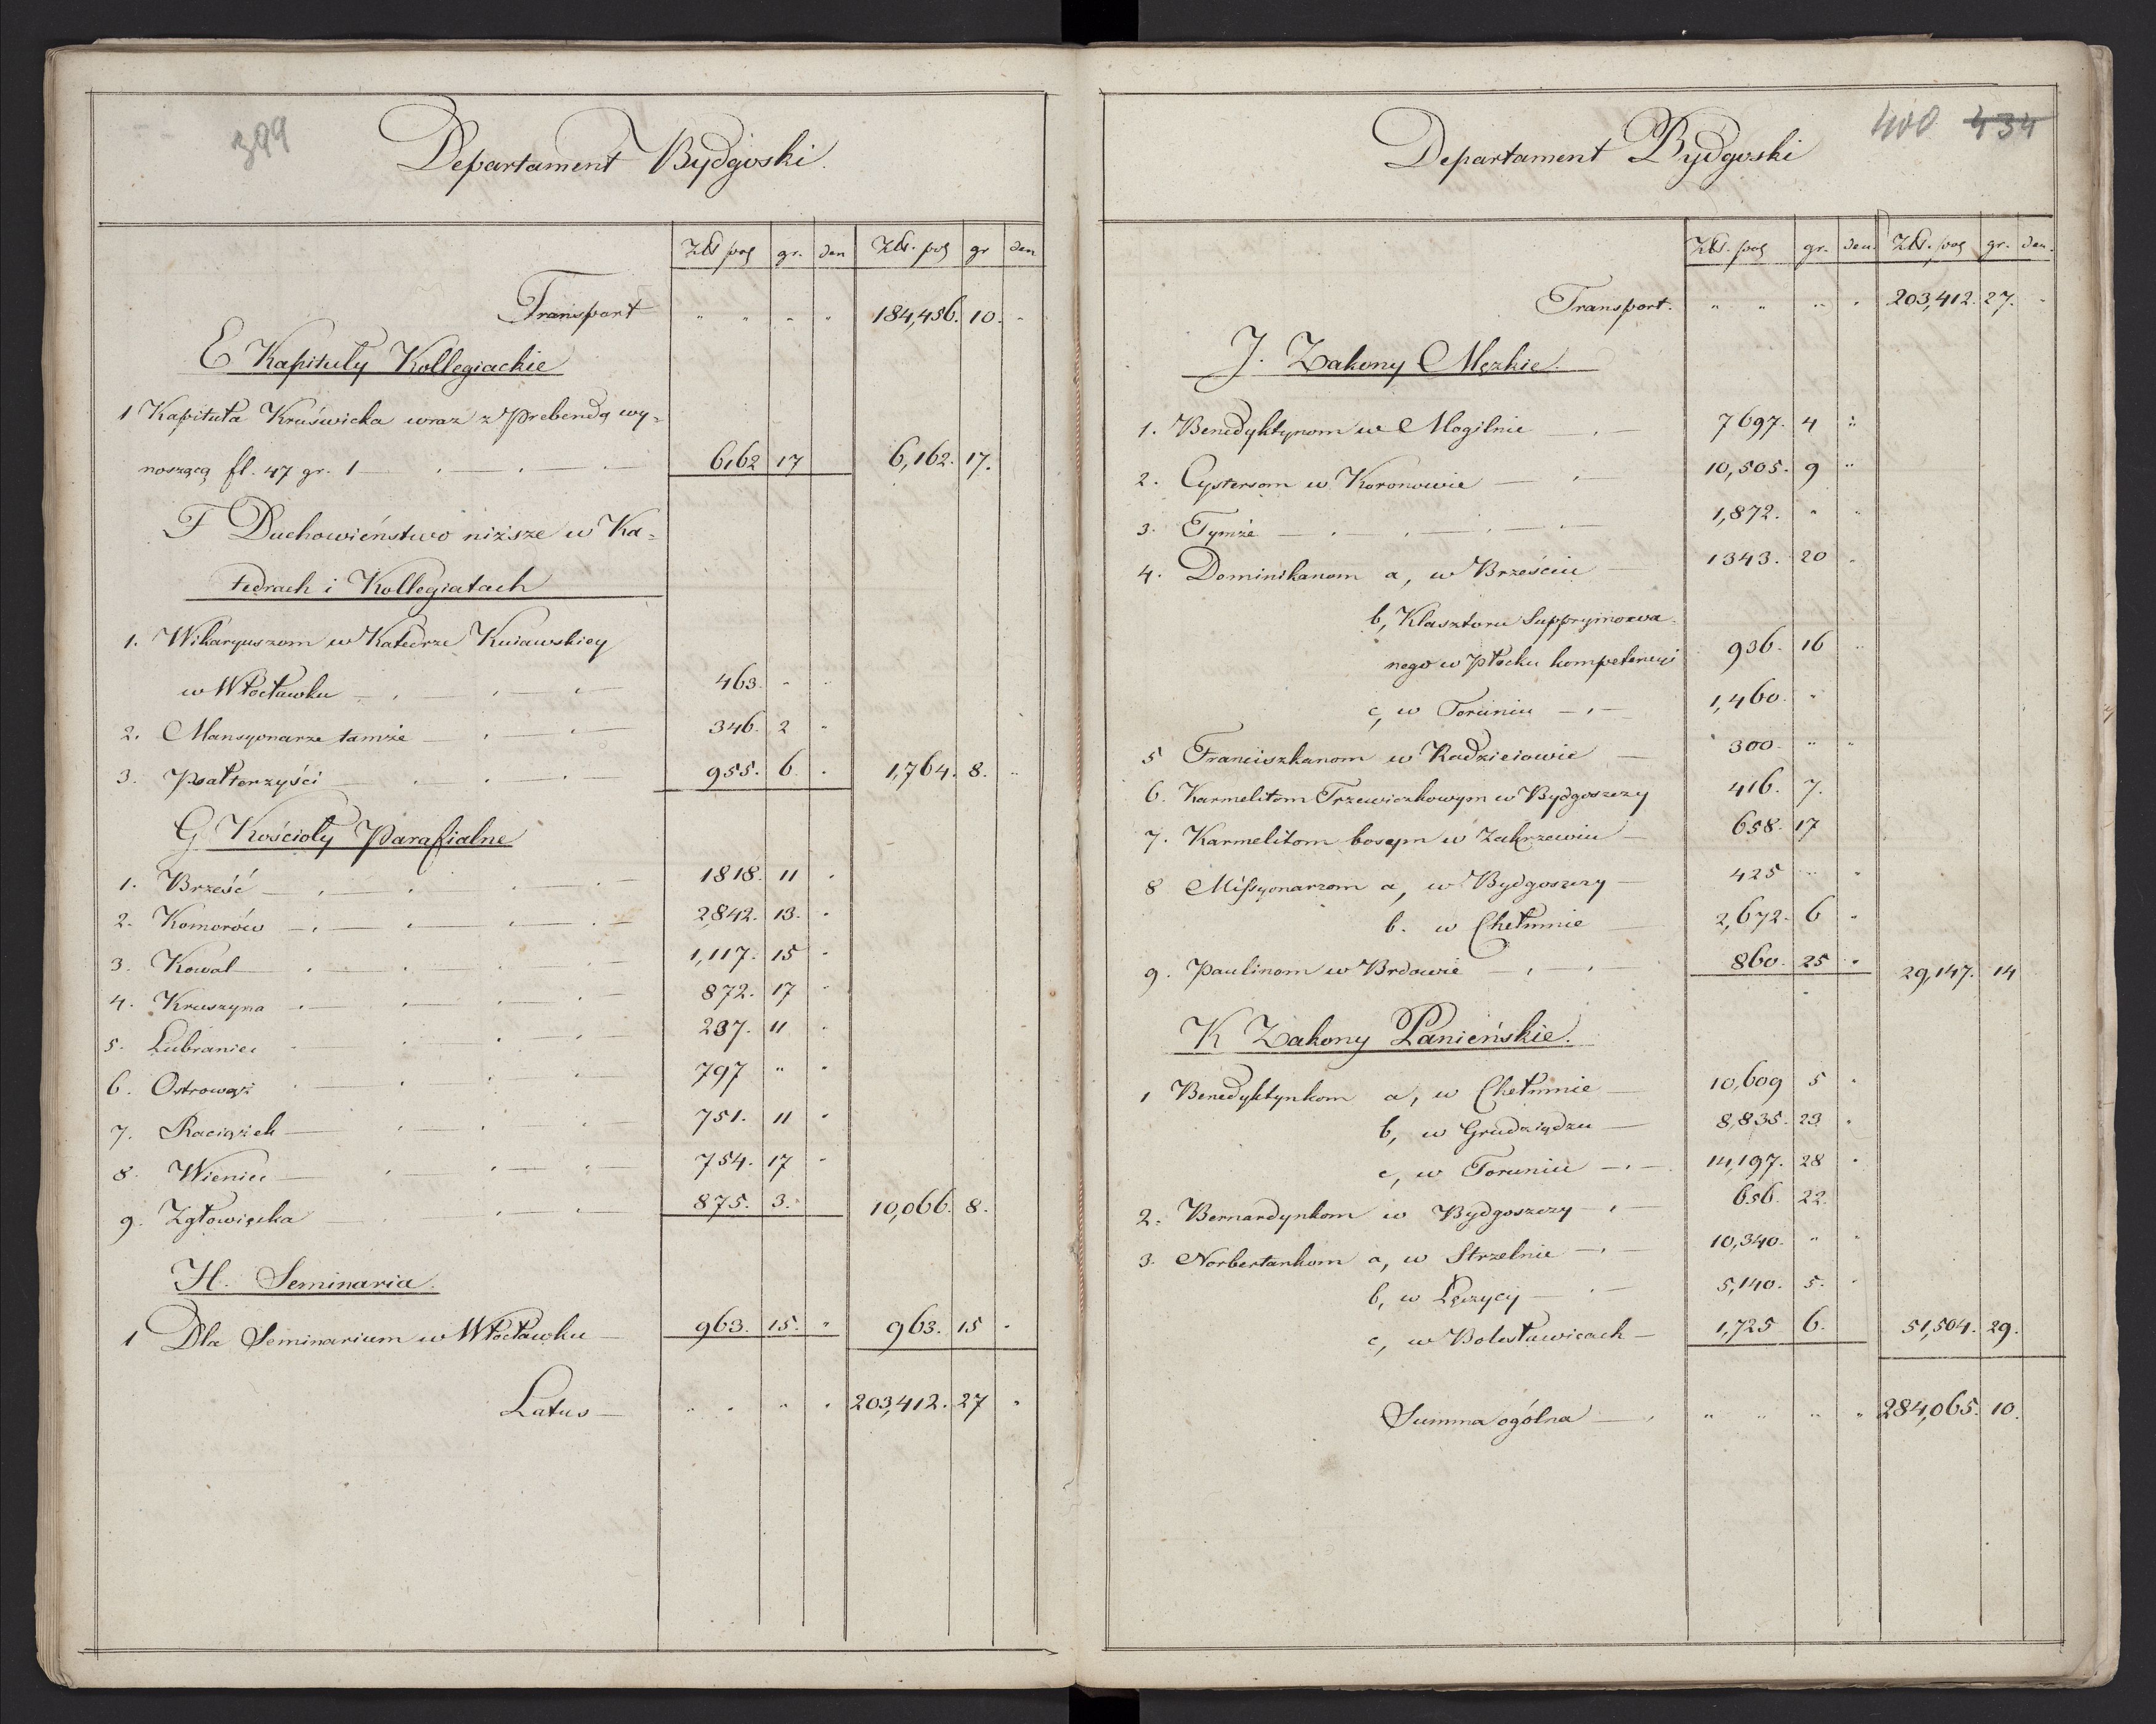 399
Departament Bydgoski.
Złł pol gr. den Złł. pol gr den
Transport " " " " 184,456. 10. "
E Kapituły Kollegiackie
1 Kapituła Kruświcka wraz z Prebendą wy=
noszącą fl. 47 gr. 1 — 6162 17 6,162. 17.
F Duchowieństwo niższe w Ka=
tedrach i Kollegiatach
1. Wikaryuszom w Katedrze Kuiawskiey
w Włocławku — 463. " "
2. Mansyonarze tamże — 346. 2 "
3. Psałterzyści — 955. 6. " 1,764. 8. "
G Kościoły Parafialne
1. Brześć — 1818. 11 "
2. Komorów — 2,842. 13. "
3. Kowal — 1,117. 15 "
4. Kruszyna — 872. 17 "
5. Lubraniec — 237. 11 "
6. Ostrowąż — 797 " "
7. Raciążek — 751. 11 "
8. Wieniec — 754. 17 "
9. Zgłowiączka — 875. 3. " 10,066. 8.
H. Seminaria.
1 Dla Seminarium w Włocławku — 963. 15. " 963. 15 "
Latus — " " " " 203,412. 27 "
400 434
Departament Bydgoski
Złł. pol gr. den. Złł. pol gr. den.
Transport. " " " " 203,412. 27. "
J. Zakony Męzkie.
1. Benedyktynom w Mogilnie — 7697. 4 "
2. Cystersom w Koronowie — 10,505. 9 "
3. Tymże — 1,872. " "
4. Dominikanom a, w Brześciu — 1343. 20 "
b, Klasztoru Supprymowa=
nego w Płocku kompetencyi 936. 16 "
c, w Toruniu — 1,460. "
5 Franciszkanom w Radzieiowie — 300. " "
6. Karmelitom Trzewiczkowym w Bydgoszczy 416. 7.
7. Karmelitom bosym w Zakrzewiu — 658. 17
8 Missyonarzom a, w Bydgoszczy — 425 " "
b. w Chełmnie — 2,672. 6 "
9. Paulinom w Brdowie — 860. 25 " 29,147. 14
K Zakony Panieńskie.
1 Benedyktynkom a, w Chełmnie — 10,609 5 "
b, w Grudziądzu — 8,835. 23 "
c, w Toruniu — 14,197. 28 "
2. Bernardynkom w Bydgoszczy — 656. 22.
3. Norbertankom a, w Strzelnie — 10,340. " "
b, w Łęczycy — 5,140. 5. "
c, w Bolesławicach — 1,725 6. 51,504. 29.
Summa ogólna — " " " " 284,065. 10.